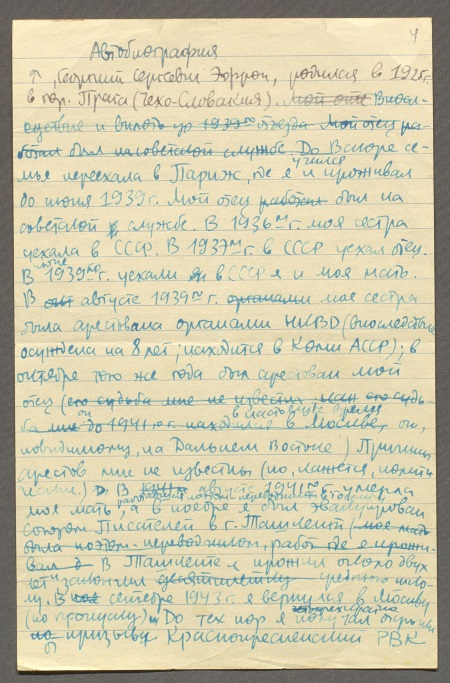 4
Автобиография
Я, Георгий Сергеевич Эфрон, родился в 1925 г.
в гор. Прага (Чехо-Словакия). Мой оте Впосл-
едствие и вплоть до 1939го отъезда Мой отец ра-
ботал был на советской службе. До Вскоре се-
мья переехала в Париж, где я учился и проживал
до июня 1939 г. Мой отец работал был на
советской службе. В 1936м г. моя сестра
уехала в СССР. В 1937м г. в СССР уехал отец.
В июне 1939го г. уехали в СССР я и моя мать.
В августе 1939го г. органами моя сестра
была арестована органами НКВД (впоследствии
осуждена на 8 лет; находится в Коми АССР); в
октябре того же года был арестован мой
отец (его судьба мне не известна его судь-
ба мне до 1941го г. он находился в Москве, в настоящее время он,
повидимому, на Дальнем Востоке) Причины
арестов мне не известны (но, кажется, полити-
ческие.) В августе 1941го г. умерла
моя мать, а в ноябре я был эвакуирован
союзом Писателей в г. Ташкент (моя мать
была поэтом-переводчиком, работ где я прожи-
вал В Ташкенте я прожил около двух
лет и закончил десятилетку среднюю шко-
лу. В сентябре 1943 г. я вернулся в Москву
(по пропуску) До тех пор я получал отсрочки
по призыву Краснопресненский РВК